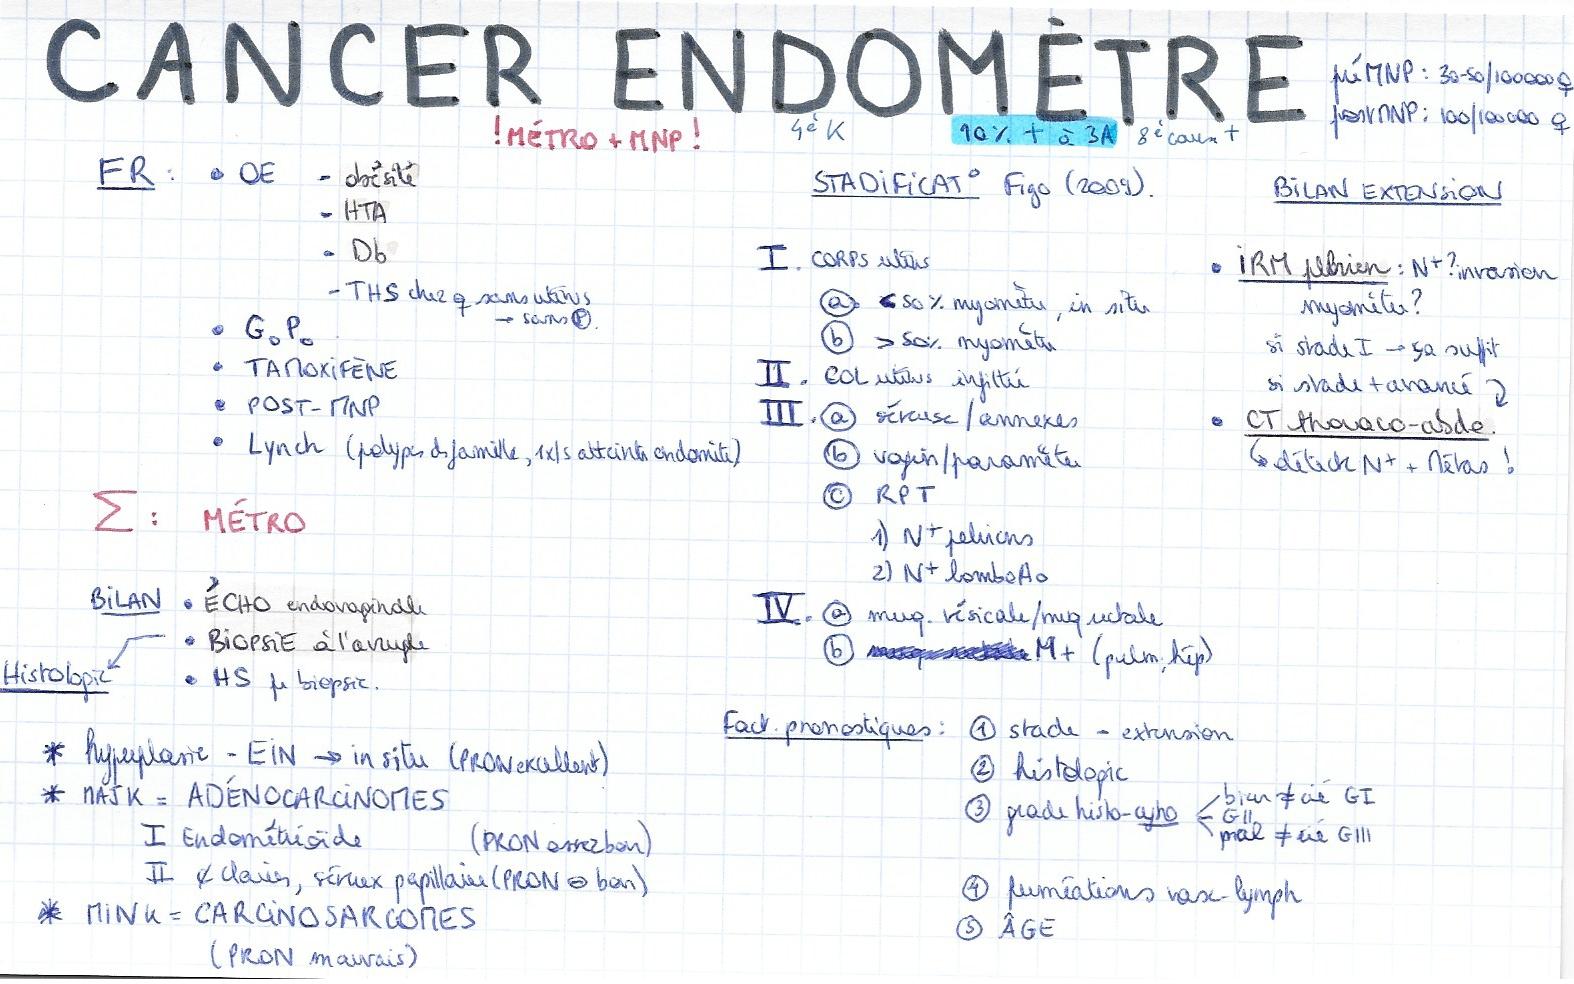 CANCER ENDOMÈTRE
préMNP : 30-50/100000 ♀
postMNP : 100/100000 ♀
! MÉTRO + MNP !
4è K
90% + à 3A
8è cause +
FR : • OE - obésité
- HTA
- Db
- THS chez ♀ sans utérus
→ sans Ⓟ.
• G₀P₀
• TAMOXIFÈNE
• POST-MNP
• Lynch (polypes ds famille, 1x/s atteinte endomètre)
Σ : MÉTRO
BILAN • ÉCHO endovaginale
• BIOPSIE à l'aveugle
• HS + biopsie.
Histologie
* hyperplasie - EIN → in situ (PRON excellent)
* MAJK = ADÉNOCARCINOMES
I Endométrioïde (PRON assez bon)
II ¢ claires, séreux papillaire (PRON ⊖ bon)
* MINK = CARCINOSARCOMES
(PRON mauvais)
STADIFICAT° Figo (2009).
I. CORPS utérus
ⓐ < 50% myomètre, in situ
ⓑ > 50% myomètre
II. COL utérus infiltré
III. ⓐ séreuse/annexes
ⓑ vagin/paramètre
ⓒ RPT
1) N+ pelviens
2) N+ lomboAo
IV. ⓐ muq. vésicale/muq rectale
ⓑ M+ (pulm, hép)
Fact. pronostiques : ① stade - extension
② histologie
③ grade histo-cyto
bien ≠cié GI
- GII
mal ≠cié GIII
④ perméations vasc-lymph
⑤ ÂGE
BILAN EXTENSION
• IRM pelvien : N+? invasion
myomètre?
si stade I → ça suffit
si stade + avancé
• CT thoraco-abdo.
↳ détecte N+ + Métas !